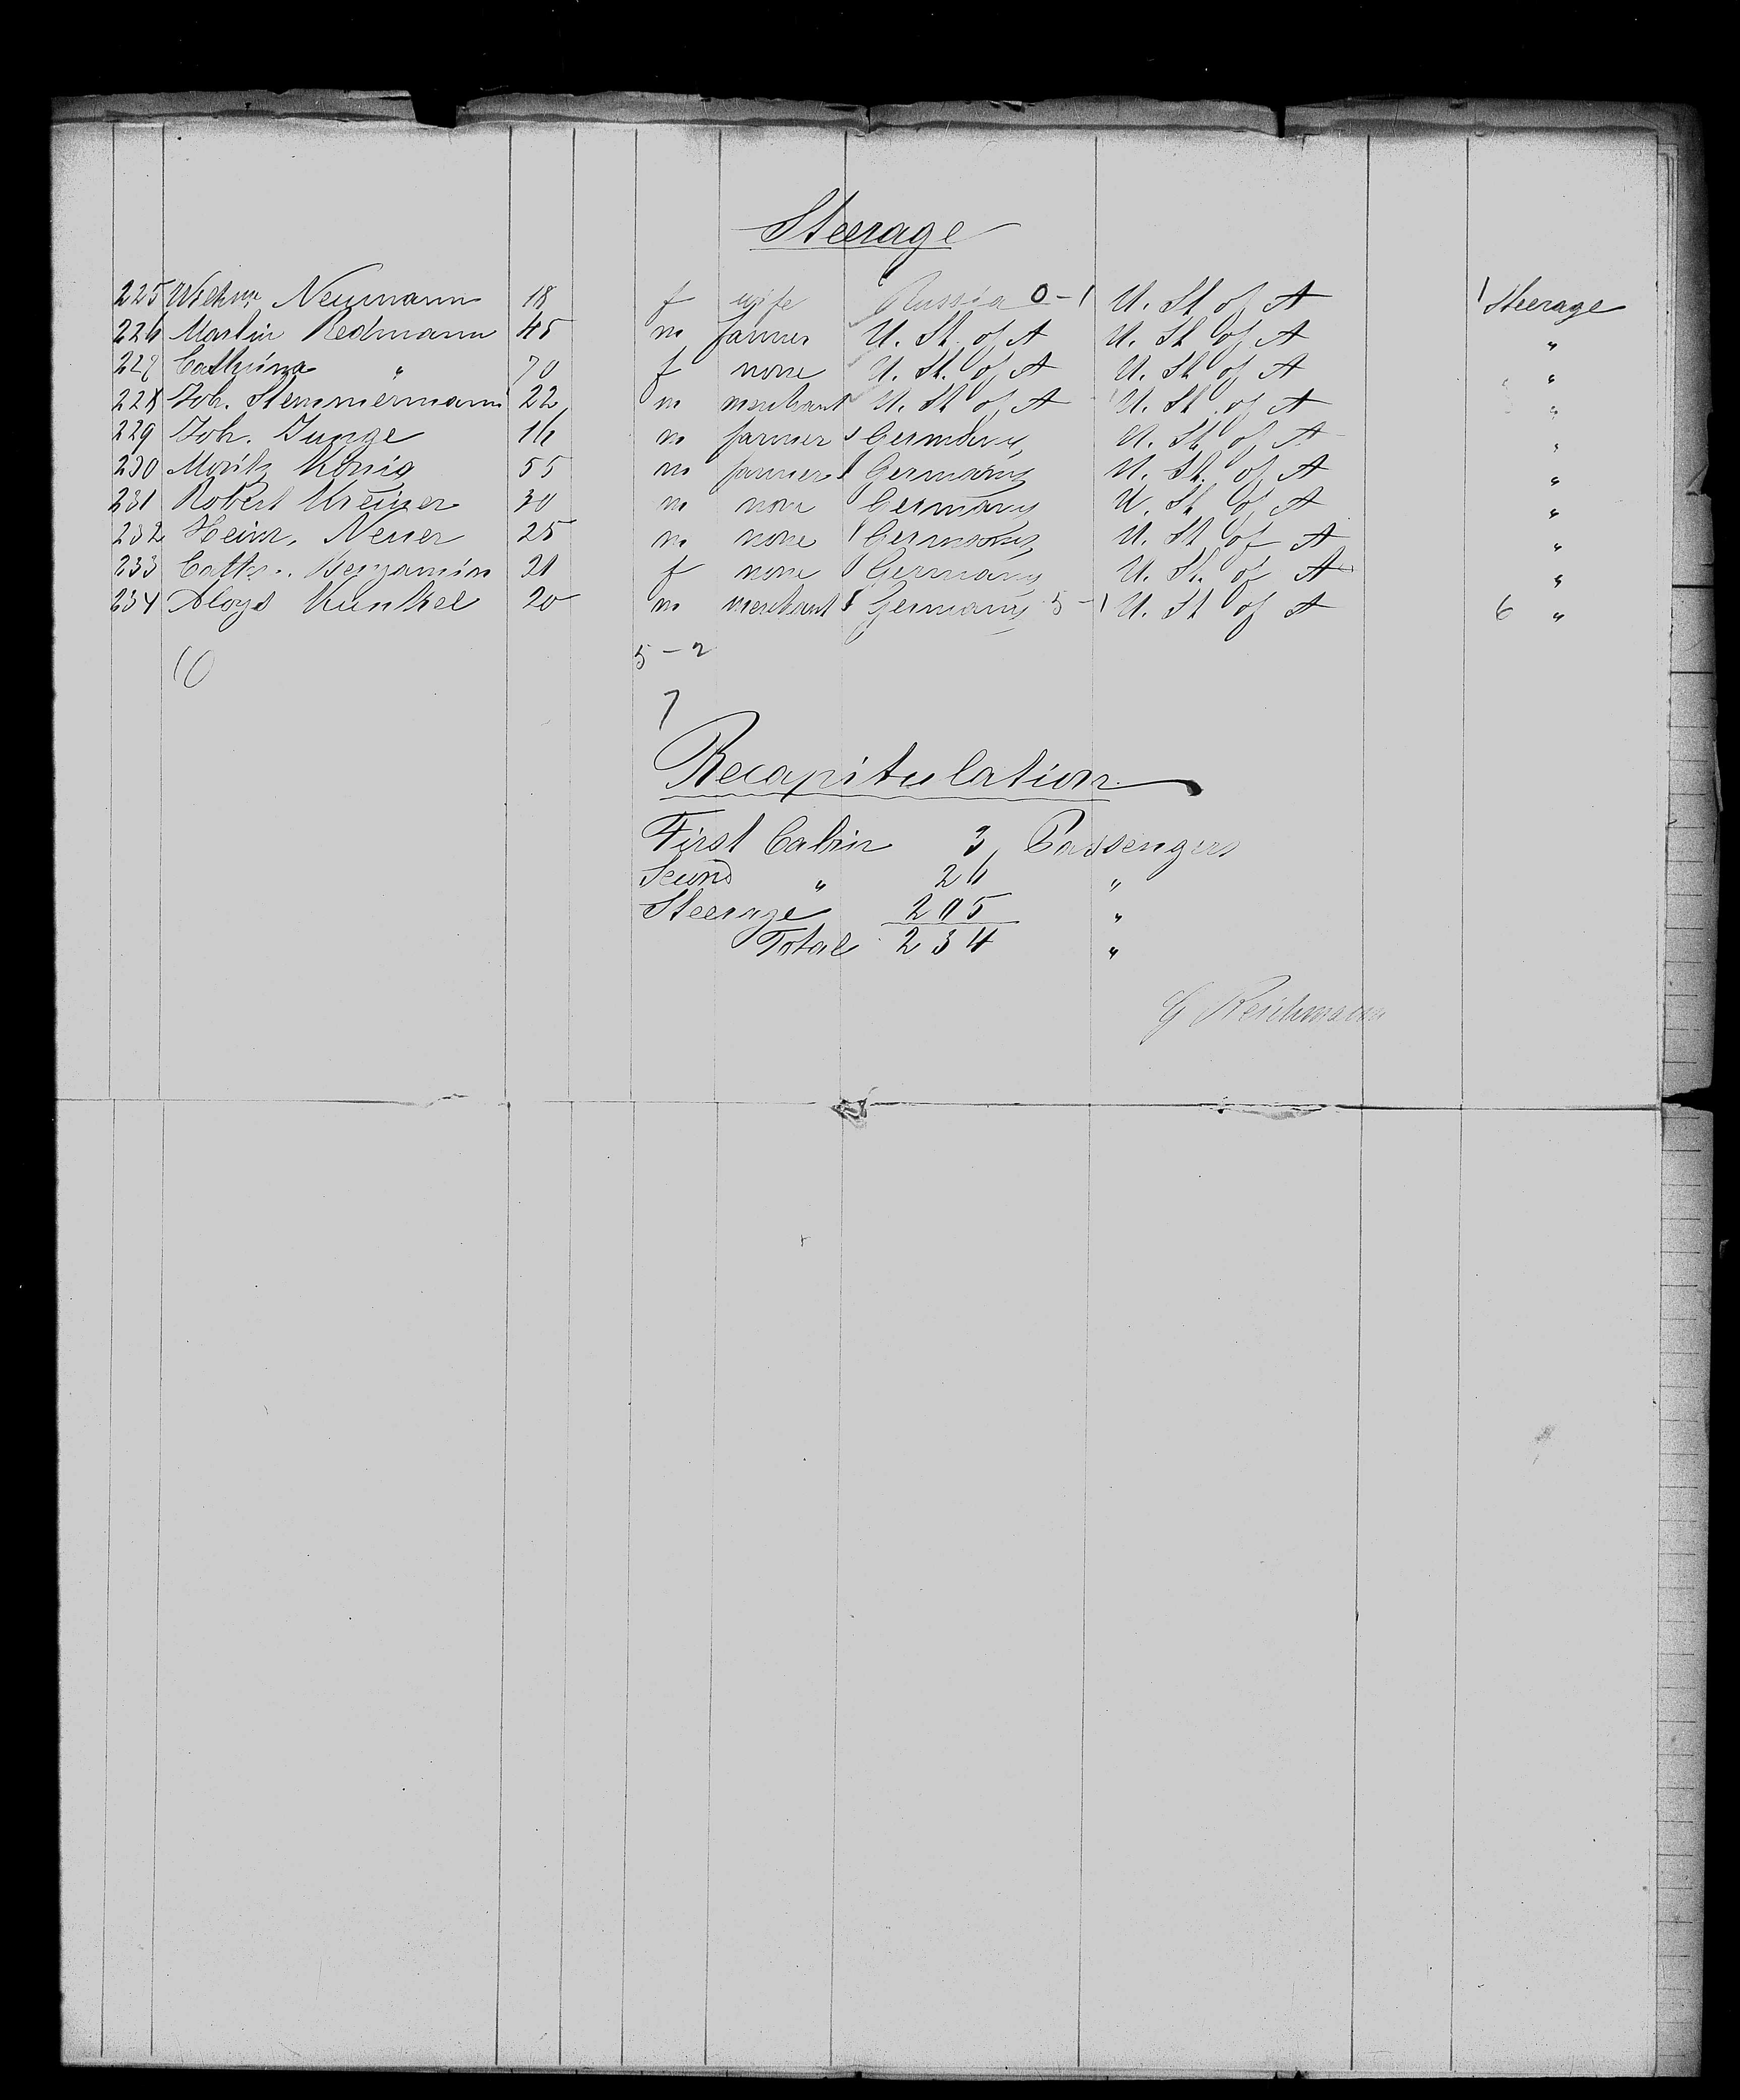 Steerage
225 Wilhne Neumann 18 f wife Russia 0-1 U. St of A 1 Steerage
226 Martin Redmann 45 m farmer U. St. of A U. St of A "
227 Cathrina " 70 f none U. St. of A U. St of A "
228 Joh. Stemmermann 22 m merchant U. St of A U. St. of A "
229 Joh. Junge 16 m farmer Germany U. St. of A "
230 Moritz König 55 m farmer Germany U. St. of A "
231 Robert 30 m none Germany U. St of A "
232 Heinr. Neuer 25 m none Germany U. St of A "
233 Benjamin 21 f none Germany U. St. of A "
234 Aloys Kunkel 20 m merchant Germany 5-1 U. St of A 6 "
5-2
7
Recapitulation
First Cabin 3 Passengers
Second " 26 "
Steerage 205 "
Total 234 "
G Reichmann